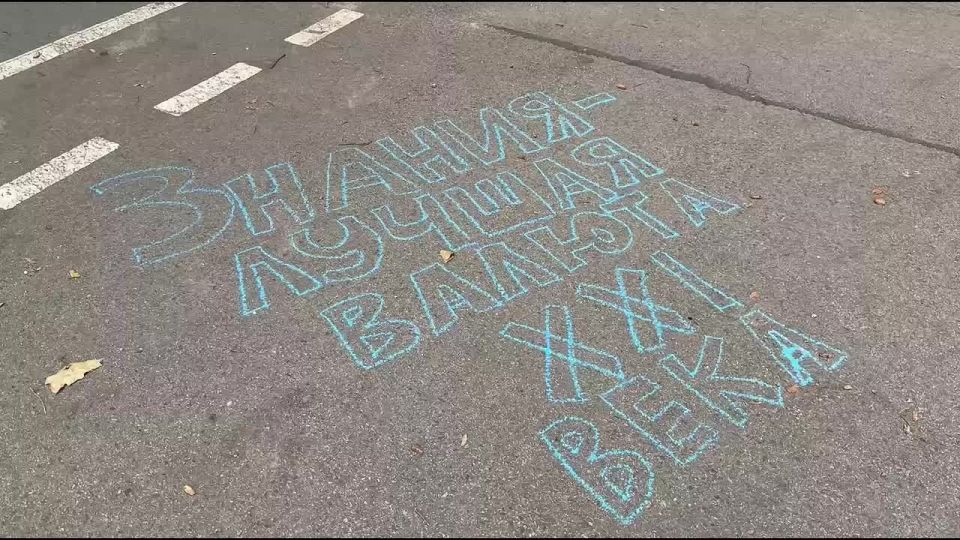 ЗНАНИЯ-
ЛУЧШАЯ
ВАЛЮТА
XXI
ВЕКА